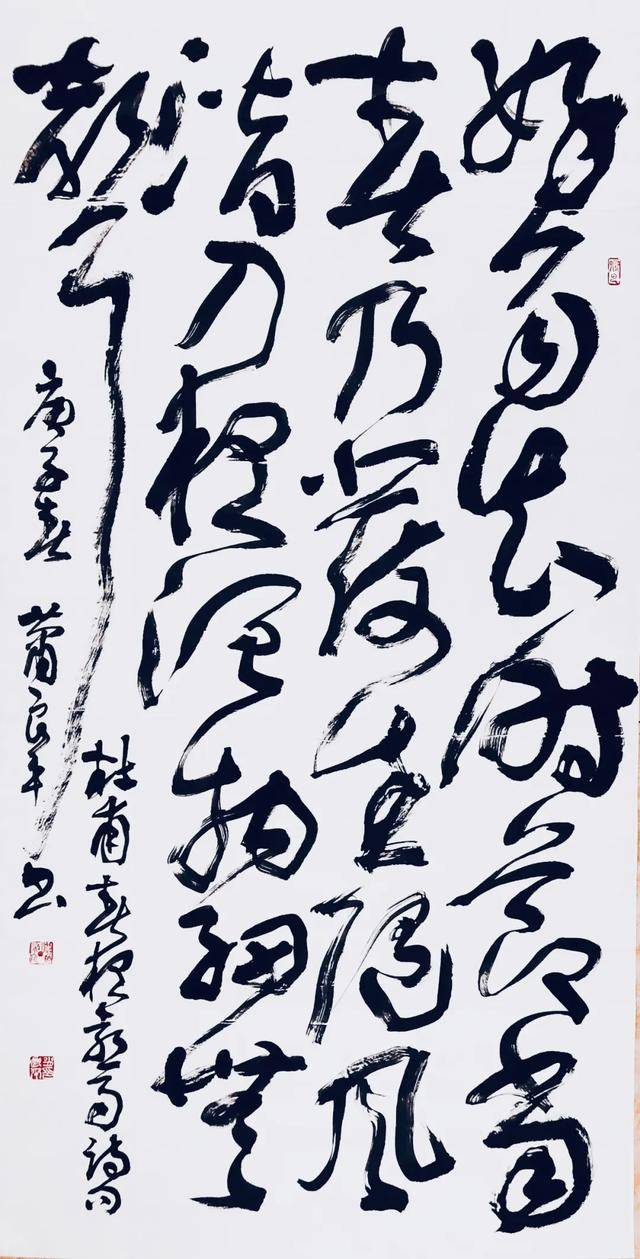 好雨知時節當
春乃發生隨風
潛入夜潤物細無
聲
杜甫春夜喜雨詩句
庚子春 蕭良平書